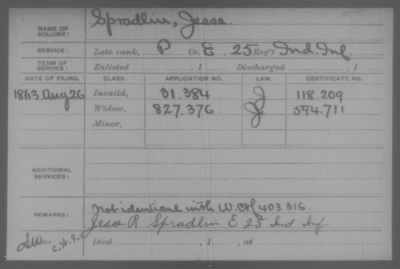 NAME OF SOLDIER: Spradlin, Jesse.
SERVICE: Late rank, P Co. E, 25 Reg't Ind Inf.
TERM OF SERVICE: Enlisted , 1 Discharged , 1
DATE OF FILING. CLASS. APPLICATION NO. LAW. CERTIFICATE NO.
1863, Aug 26 Invalid, 31.384 J 118.209
Widow, 827.376 594.711
Minor,
ADDITIONAL SERVICES:
REMARKS: Not identical with W.C. 403.316
Jesse R Spradlin E 25 Ind Inf
Died , 1 , at